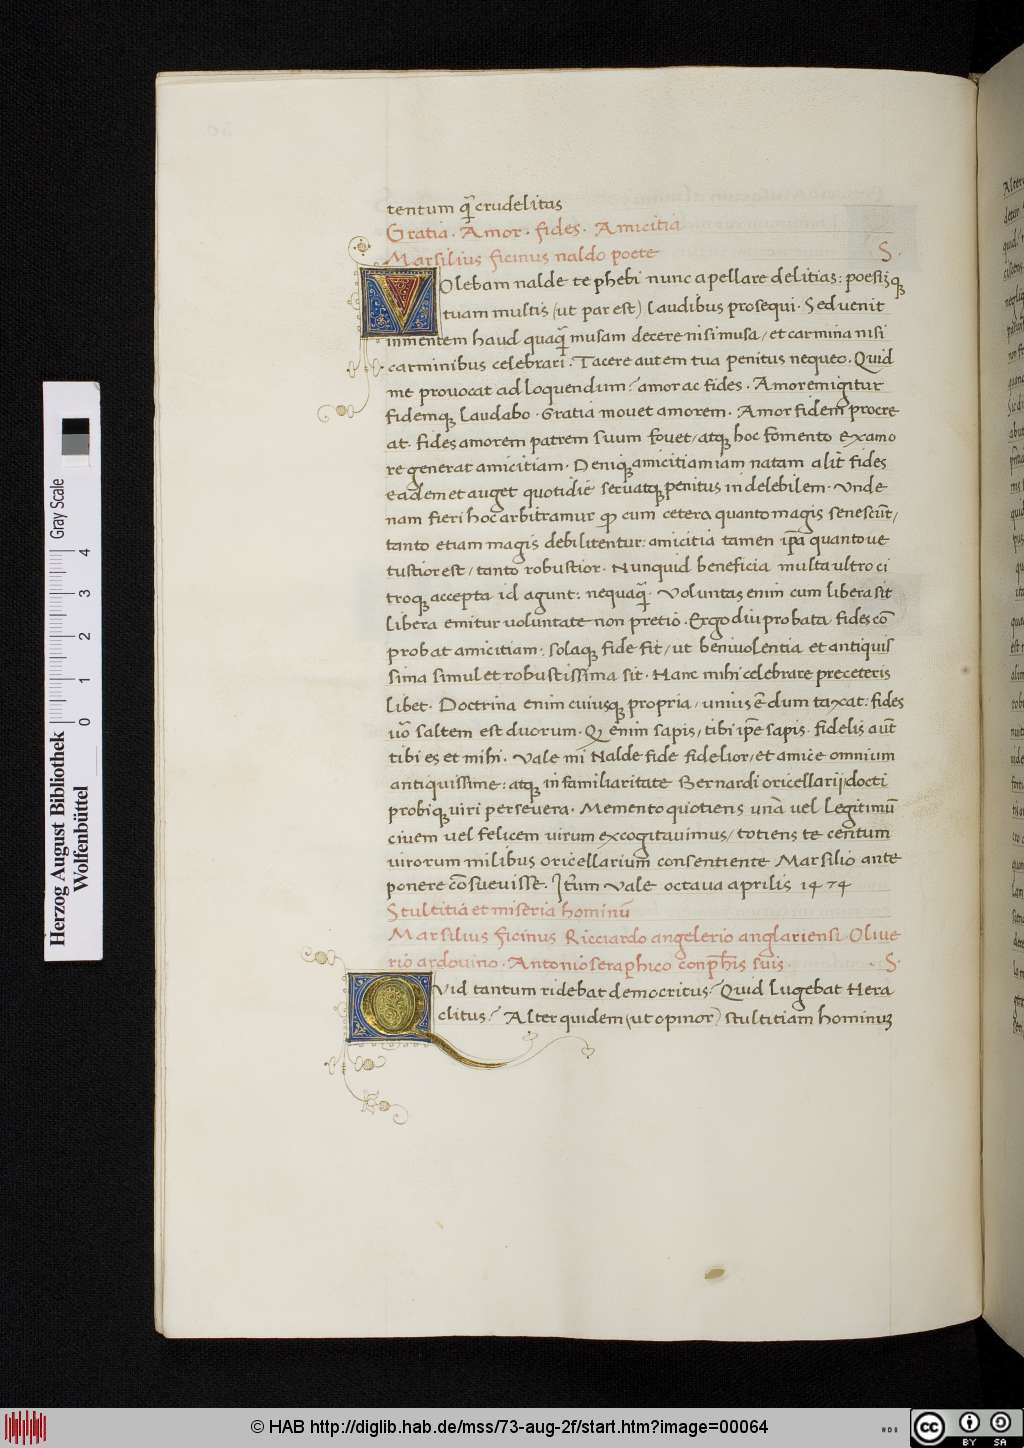 tentum q̃ crudelitas
Gratia · Amor · fides · Amicitia
Marsilius ficinus naldo poete S ·
VOlebam nalde te phebi nunc apellare delitias: poesiꝫꝗ
tuam multis (ut par est) laudibus prosequi · Sed uenit
inmentem haud quaq̃ musam decere nisi musa / et carmina nisi
carminibus celebrari: Tacere autem tua penitus nequeo · Quid
me provocat ad loquendum? amor ac fides · Amorem igitur
fidemqꝫ laudabo · Gratia mouet amorem · Amor fidem procre
at · fides amorem patrem suum fouet / atqꝫ hoc fomento ex amo
re generat amicitiam · Deniqꝫ amicitiam iam natam alit fides
eadem et auget quotidie seruatqꝫ penitus indelebilem · Unde
nam fieri hoc arbitramur ꝙ cum cetera quanto magis senescũt /
tanto etiam magis debilitentur: amicitia tamen ip̃a quanto ue
tustior est / tanto robustior · Nunquid beneficia multa ultro ci
troqꝫ accepta id agunt: nequaq̃ · Voluntas enim cum libera sit
libera emitur uoluntate non pretio · Ergo diu probata fides cõ
probat amicitiam: solaqꝫ fide fit / ut beniuolentia et antiquis
sima simul et robustissima sit · Hanc mihi celebrare preceteris
libet · Doctrina enim cuiusqꝫ propria / unius ẽ dum taxat: fides
uo᷈ saltem est duorum · Q enim sapis / tibi ip̃e sapis · fidelis aũt
tibi es et mihi · Vale mi Nalde fide fidelior / et amice omnium
antiquissime: atqꝫ in familiaritate Bernardi oricellarij docti
probiqꝫ uiri perseuera · Memento quotiens unã uel legitimũ
ciuem uel felicem uirum excogitauimus / totiens te centum
uirorum milibus oricellarium consentiente Marsilio ante
ponere cõsueuisse · Iteũm Vale octaua aprilis 1474
Stultitia et miseria hominũ
Marsilius ficinus Ricciardo angelerio anglariensi Oliue
rio ardouino · Antonio seraphico conph̃is suis · S ·
QVid tantum ridebat democritus? Quid lugebat Hera
clitus? Alter quidem (ut opinor) stultitiam hominuꝫ
Herzog August Bibliothek
Wolfenbüttel
0 1 2 3 4
Gray Scale
© HAB http://diglib.hab.de/mss/73-aug-2f/start.htm?image=00064
cc BY SA